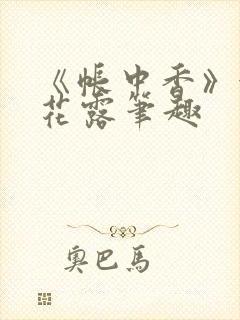 《帐中香》
花露笔趣
奥巴马